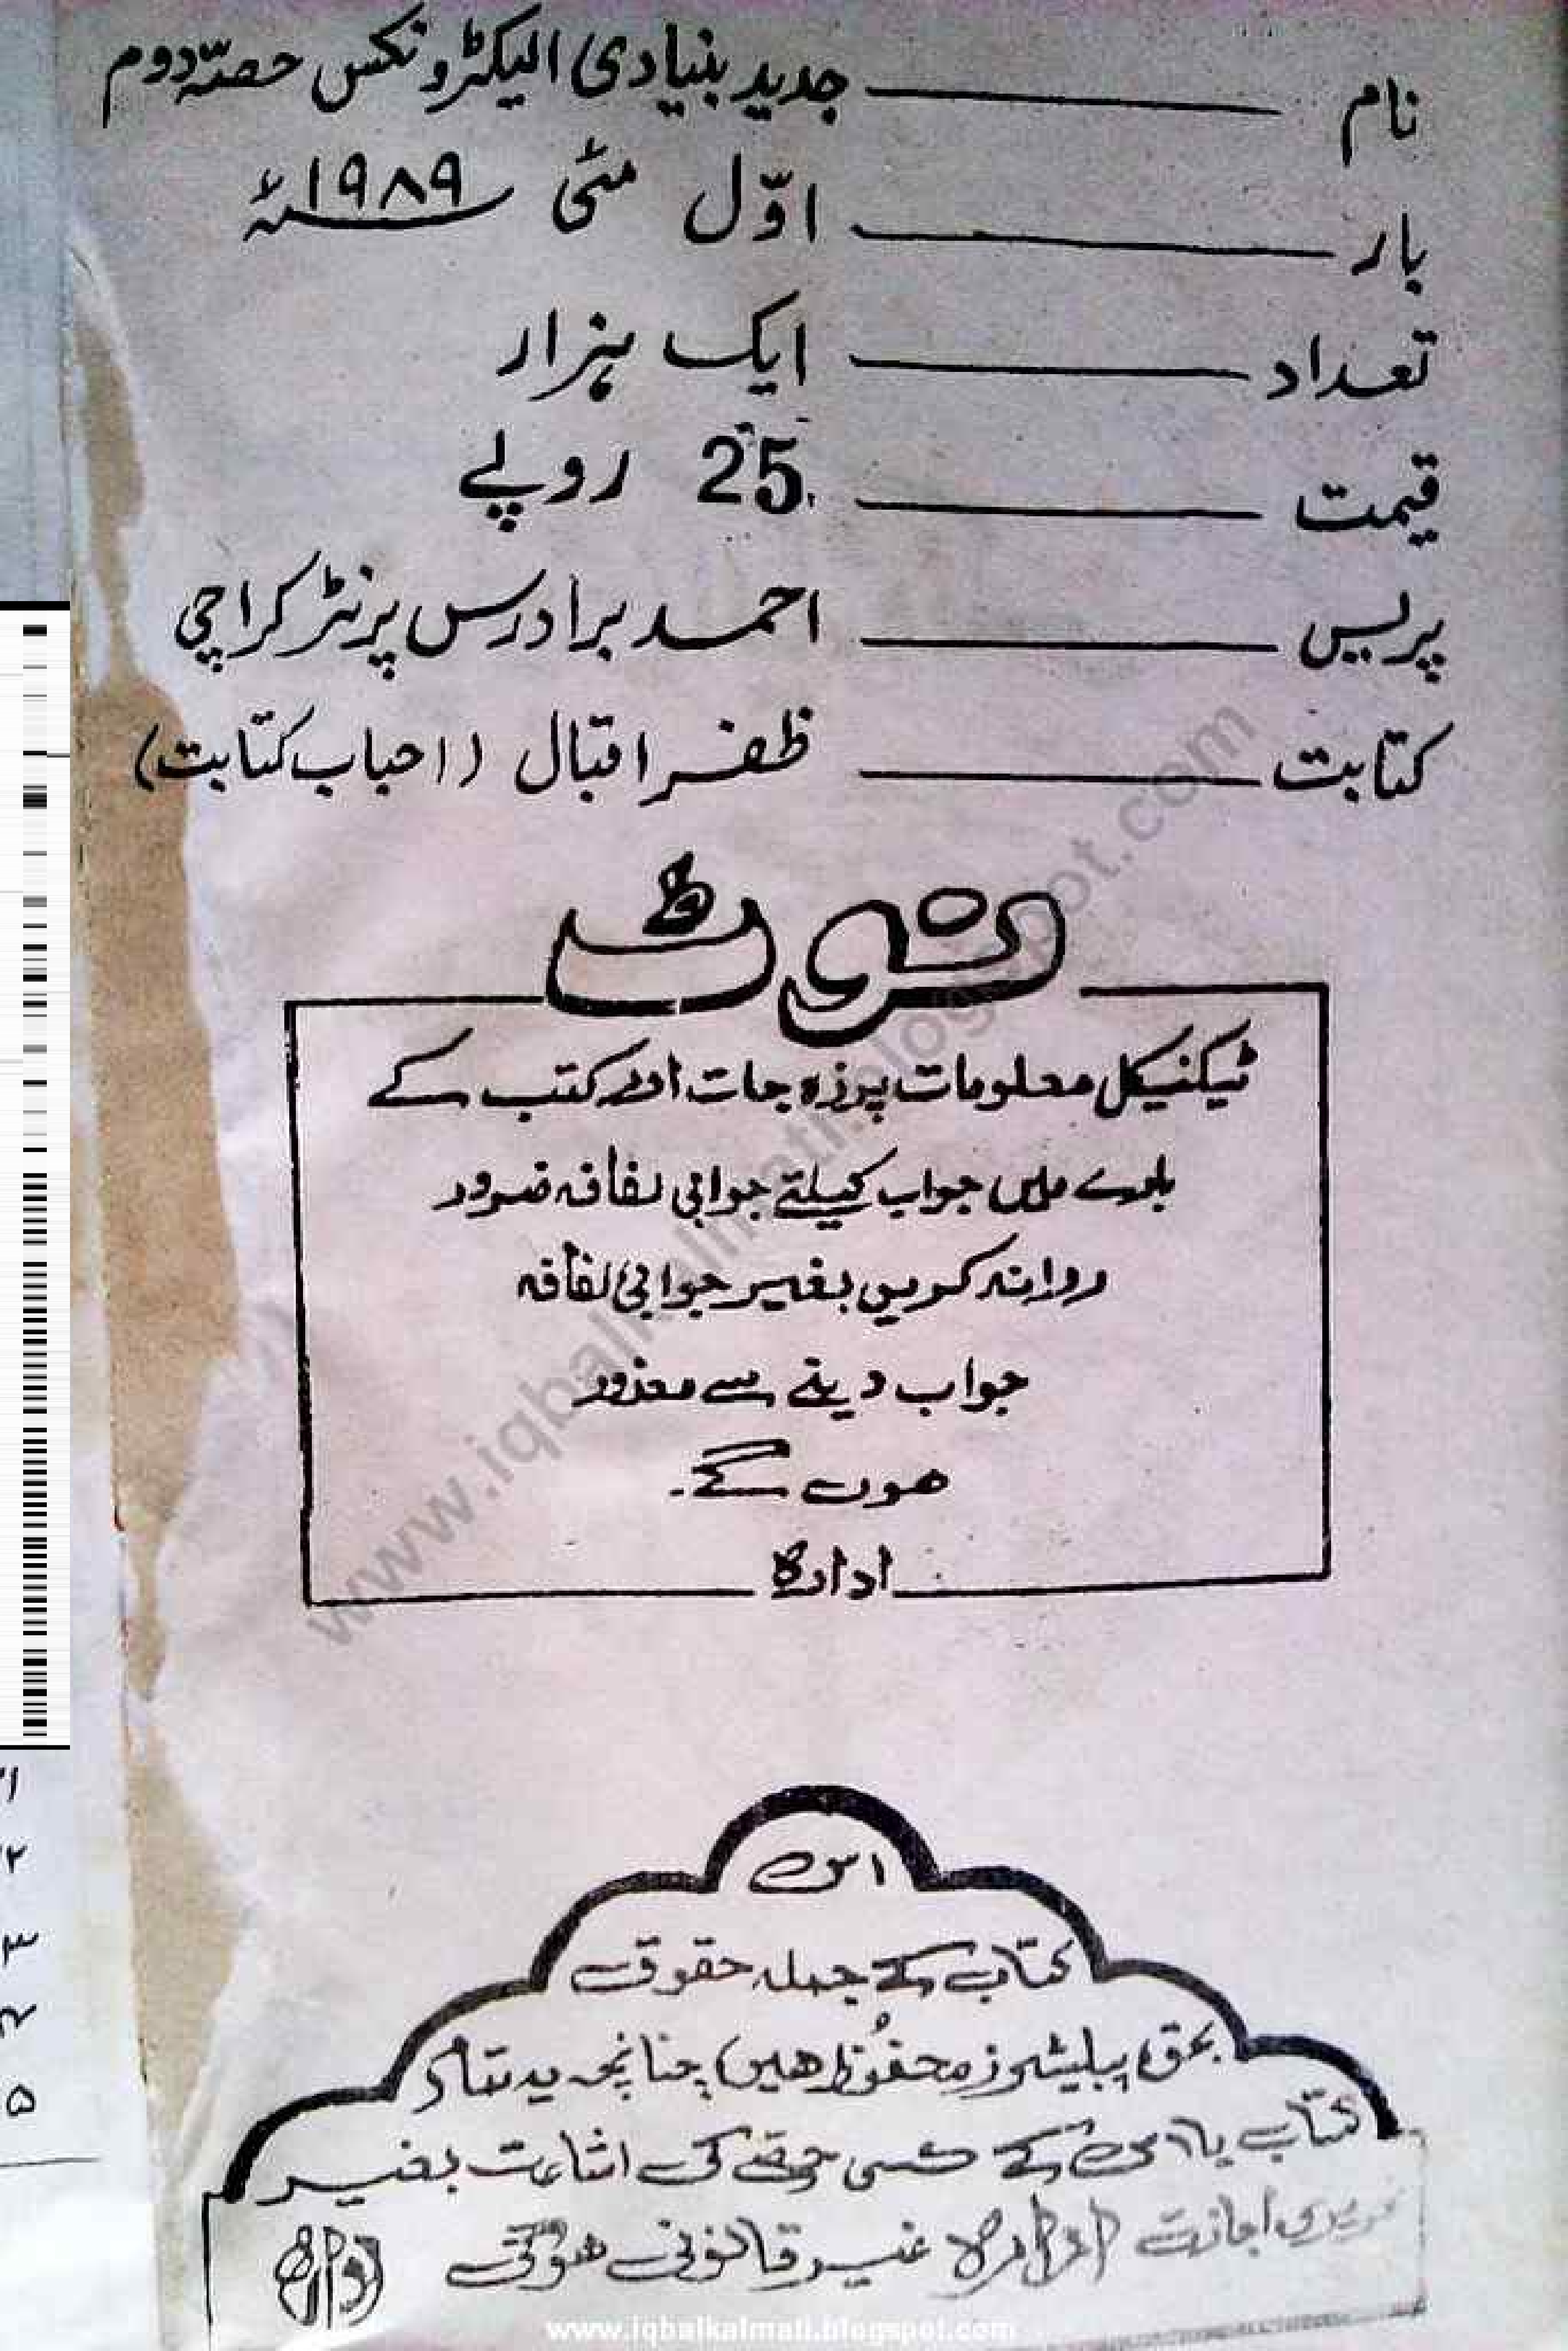 نام ــــــ جدید بنیادی الیکٹرونکس حصّہ دوم
بار ــــــ اوّل مئی ۱۹۸۹ء
تعداد ــــــ ایک ہزار
قیمت ــــــ 25 روپے
پریس ــــــ احمد برادرس پرنٹر کراچی
کتابت ــــــ ظفر اقبال (احباب کتابت)
نوٹ
ٹیکنیکل معلومات پرزہ جات اور کتب کے
بارے میں جواب کیلئے جوابی لفافہ ضرور
روانہ کریں بغیر جوابی لفافہ
جواب دینے سے معذور
ہوں گے۔
ادارہ
اس
کتاب کے جملہ حقوق
بحق پبلیشرز محفُوظ ہیں چنانچہ یہ
کتاب یا اس کے کسی حصے کی اشاعت بغیر
تحریری اجازت ادارہ غیر قانونی ہوگی
ادارہ
۱
۲
۳
۵
www.iqbalkalmati.blogspot.com
www.iqbalkalmati.blogspot.com